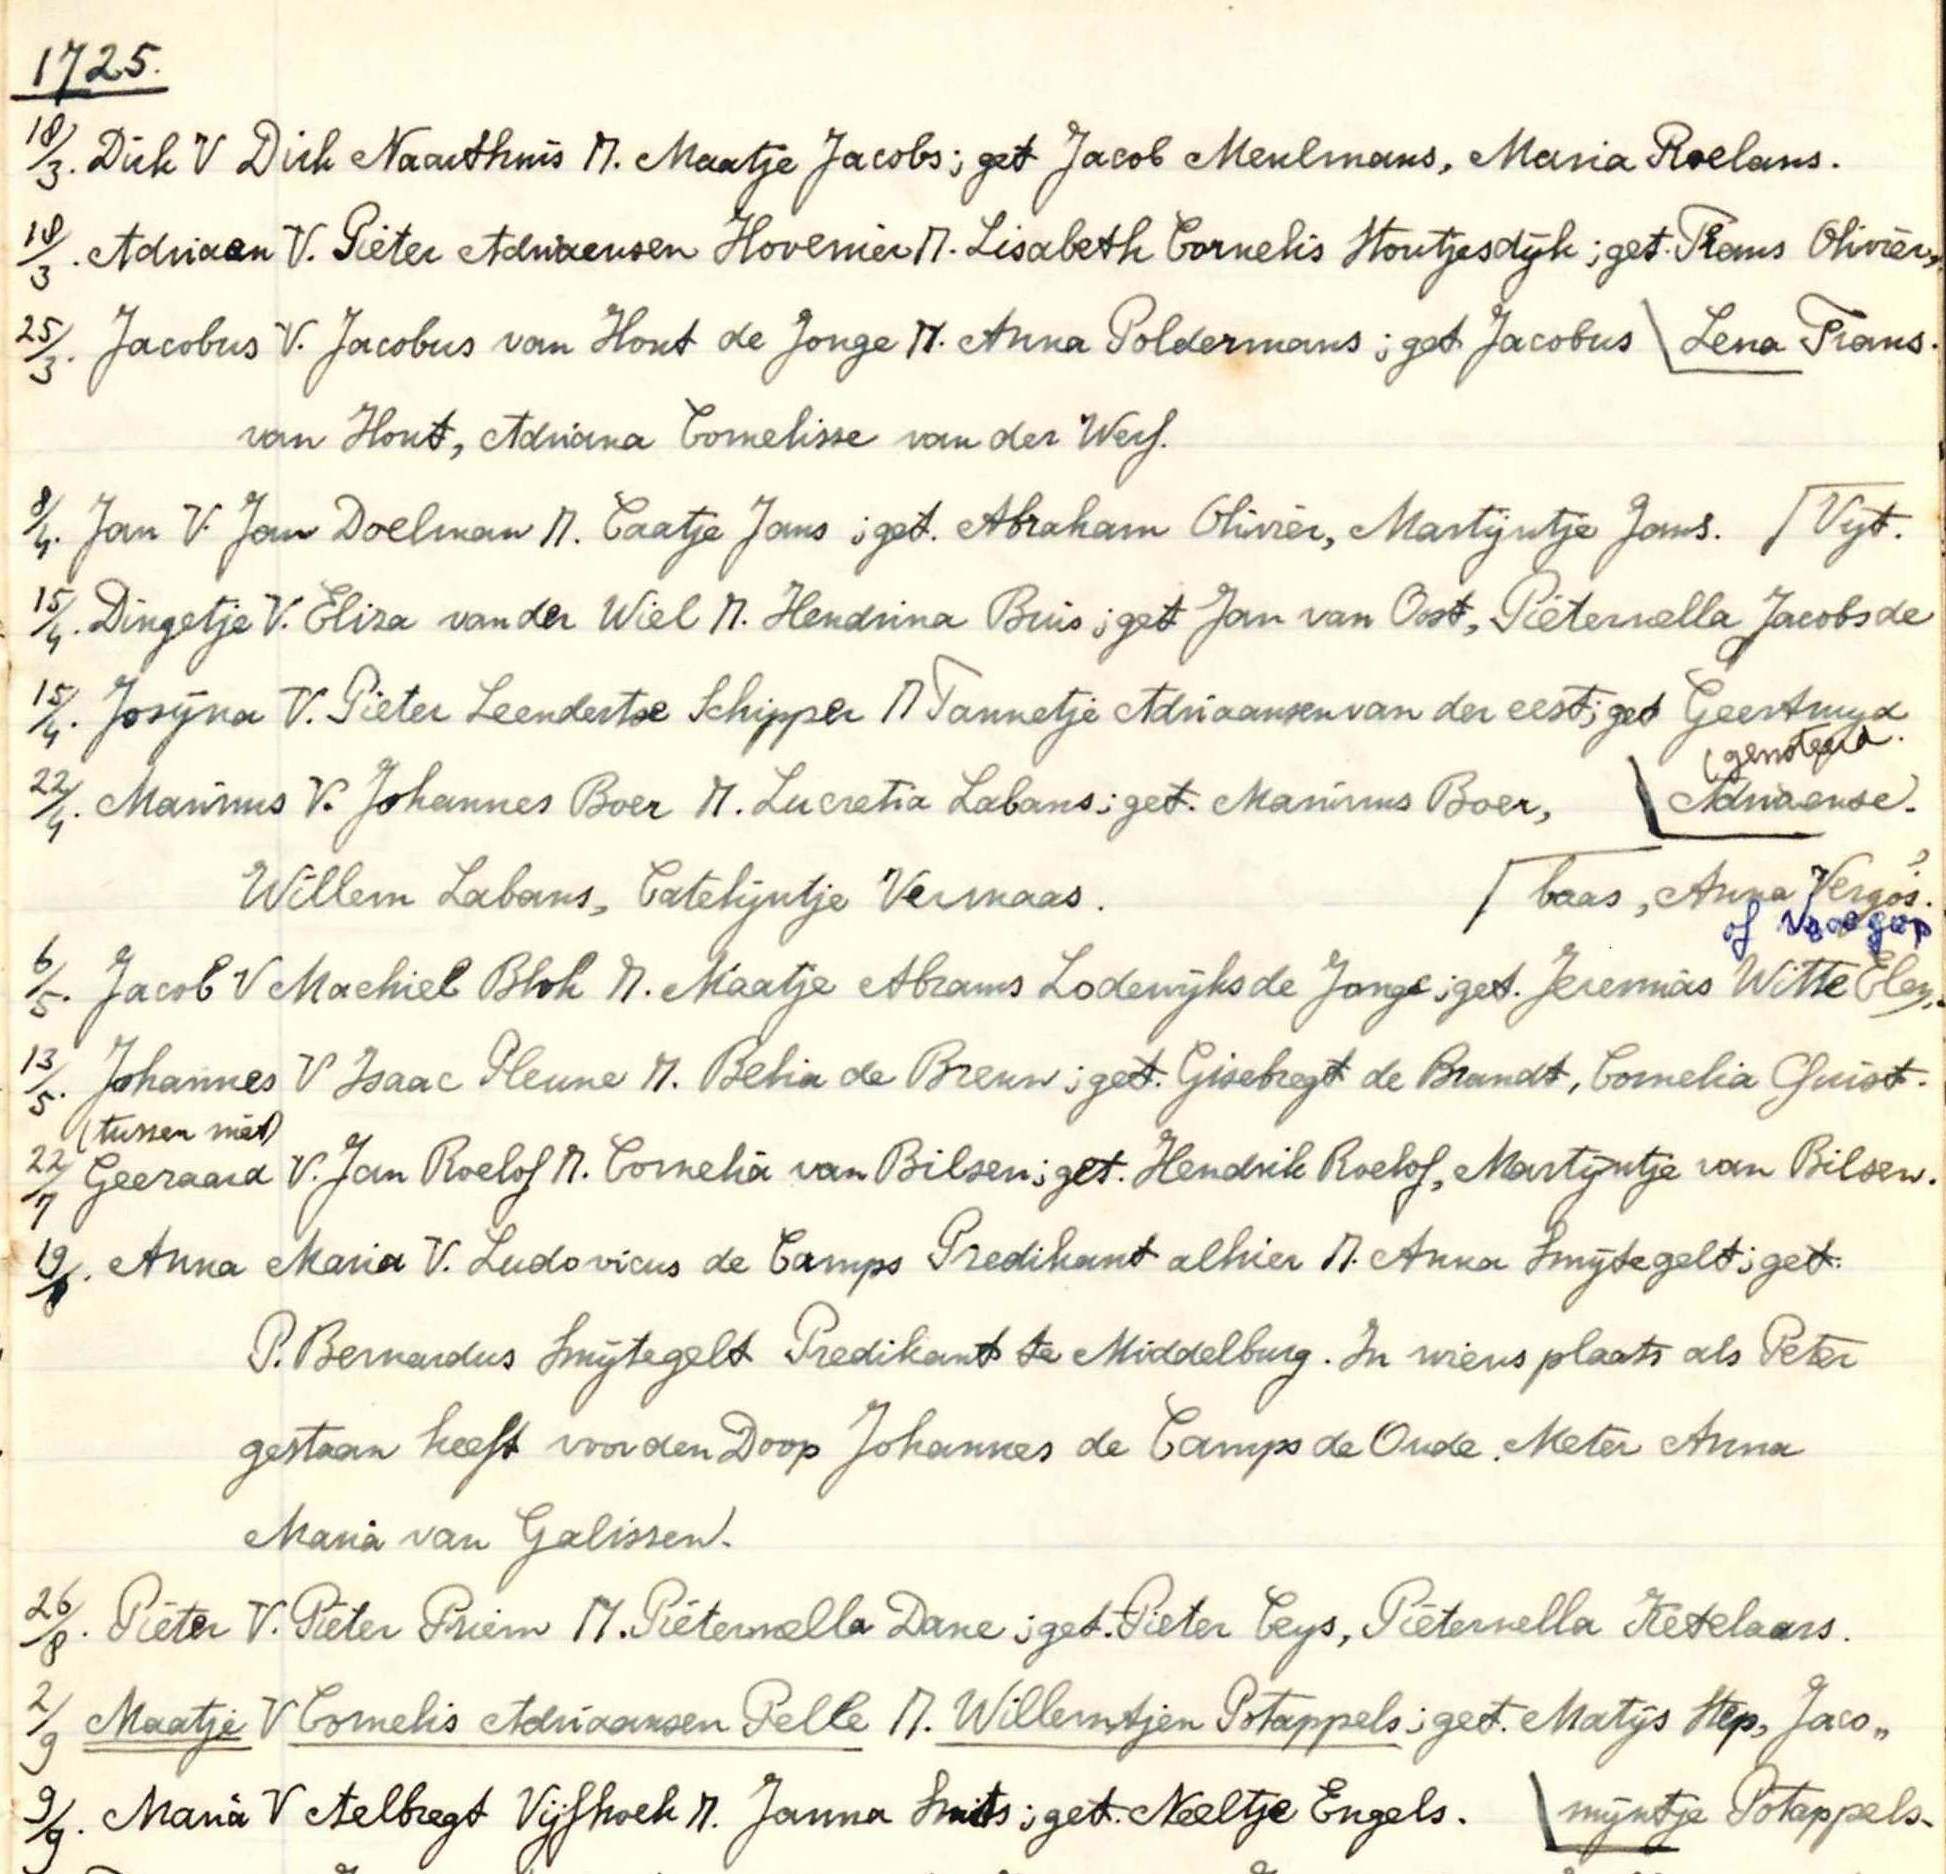 1725.
18/3. Dirk V Dirk Naarthuis M. Maatje Jacobs; get Jacob Meulmans, Maria Roelans.
18/3. Adriaen V. Pieter Adriaensen Hovenier M. Lisabeth Cornelis Stoutjesdijk; get. Frans Olivier,
25/3. Jacobus V. Jacobus van Hout de Jonge M. Anna Poldermans; get Jacobus \ Lena Frans.
van Hout, Adriana Cornelisse van der Werf.
8/4. Jan V. Jan Doelman M. Caatje Jans; get. Abraham Olivier, Martijntje Jans. / Vijt.
15/4. Dingetje V. Eliza van der Wiel M. Hendrina Buis; get Jan van Oost, Pieternella Jacobs de
15/4. Josijna V. Pieter Leendertse Schipper M Tannetje Adriaansen van der eest; get
22/4. Marinus V. Johannes Boer M. Lucretia Labans; get. Marinus Boer, \ Adriaense.
Willem Labans, Catelijntje Vermaas. / baas, Anna Vergos?.
of
6/5. Jacob V Machiel Blok M. Maatje Abrams Lodewijks de Jonge; get. Jeremias Witte
13/5. Johannes V Isaac Pleune M. Belia de Breun; get. Gisebregt de Brandt, Cornelia Quist.
(tussen met)
22/7 Geeraard V. Jan Roelof M. Cornelia van Bilsen; get. Hendrik Roelof, Martijntje van Bilsen.
19/8. Anna Maria V. Ludovicus de Camps Predikant alhier M. Anna Smijtegelt; get.
P. Bernardus Smijtegelt Predikant te Middelburg. In wiens plaats als Peter
gestaan heeft voor den Doop Johannes de Camps de Oude. Meter Anna
Maria van Galissen.
26/8. Pieter V. Pieter Priem M. Pieternella Dane; get. Pieter Ceys, Pieternella Ketelaars.
2/9 Maatje V Cornelis Adriaansen Pelle M. Willemtjen Potappels; get. Matijs Step, Jaco„
9/9. Maria V Aelbregt Vijfhoek M. Janna Smits; get. Neeltje Engels. \ mijntje Potappels.